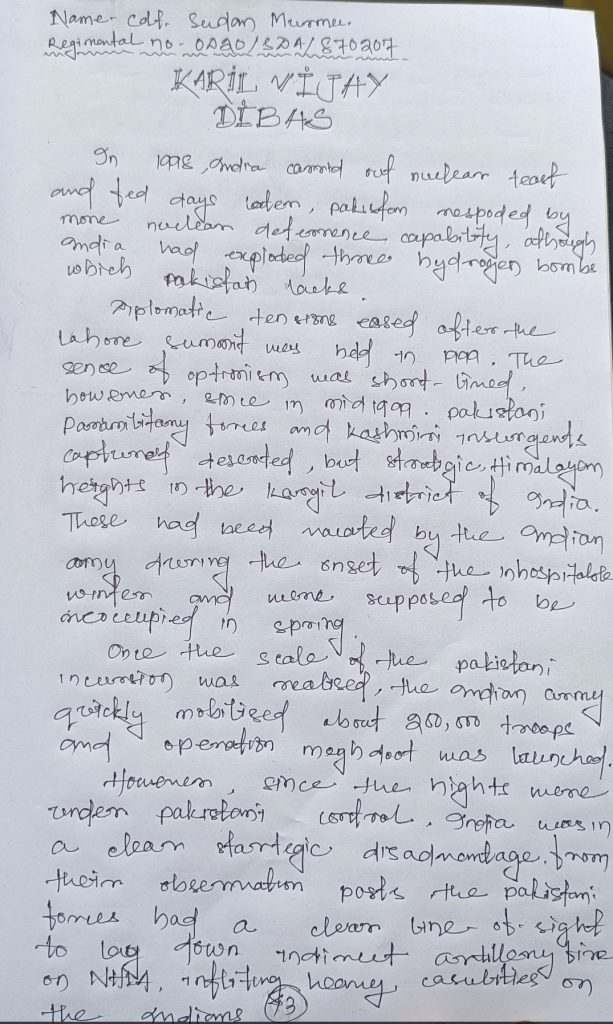 Name- Cdt. Sudan Murmu.
Regimental no - OD20/SDA/870207
KARIL VIJAY
DIBAS
In 1998, India carrid out nuclear teast
and fed days laten, pakistan nespoded by
more nuclean deterrence capability, although
India had exploted three hydrogen bombs
which pakistan lacks.
Diplomatic tensions eased after the
Lahore summit was held in 1999. The
sence of optimism was short-lined,
howemen, since in mid 1999. pakistani
Paramilitamy forces and Kashmiri insurgents
captured deserted, but strategic, Himalayan
heights in the kargil district of India.
These had beed vacated by the Indian
army druring the onset of the inhospitable
winter and were supposed to be
reoccupied in spring.
Once the scale of the pakistani
incursion was realised, the Indian army
quickly mobilised about 200,000 troops
and operation meghdoot was launched.
Howemen, since the hights were
under pakistani control. India was in
a clean startegic disadvantage. from
their observation posts the pakistani
forces had a clear line-of-sight
to lay down indirect artillery fire
on NH1A, inflicting heavy casulities on
the Indians
43